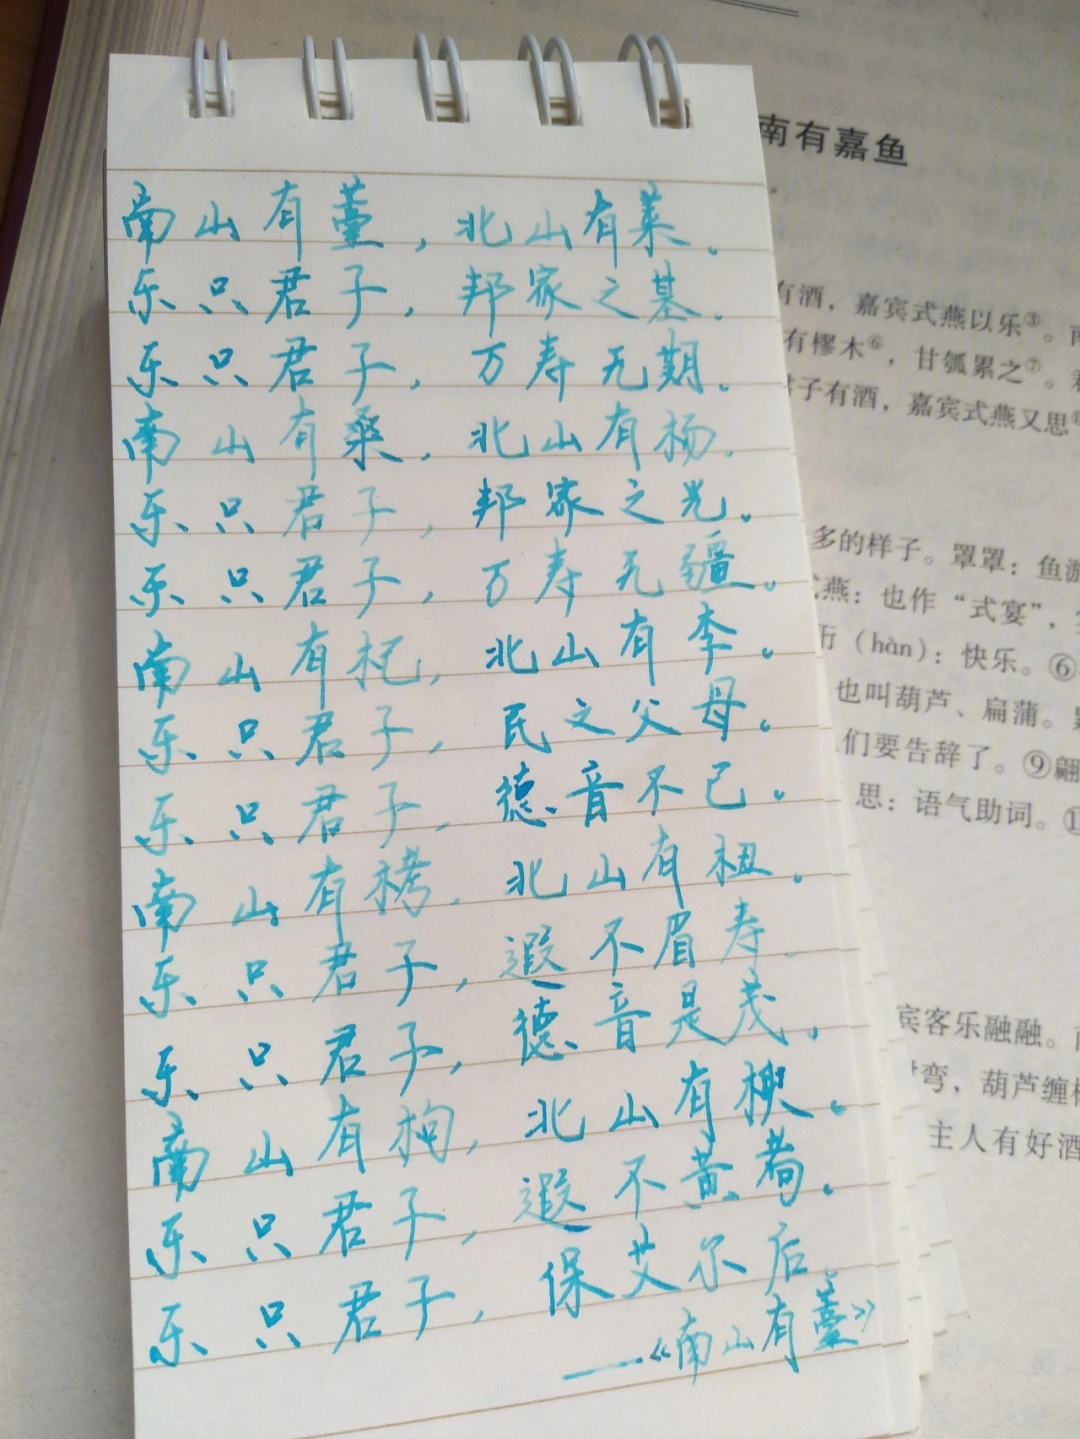 南山有薹，北山有莱。
乐只君子，邦家之基。
乐只君子，万寿无期。
南山有桑，北山有杨。
乐只君子，邦家之光。
乐只君子，万寿无疆。
南山有杞，北山有李。
乐只君子，民之父母。
乐只君子，德音不已。
南山有栲，北山有杻。
乐只君子，遐不眉寿。
乐只君子，德音是茂。
南山有枸，北山有楰。
乐只君子，遐不黄耇。
乐只君子，保艾尔后。
——《南山有薹》
南有嘉鱼
有酒，嘉宾式燕以乐③。南
有樛木⑥，甘瓠累之⑦。君
君子有酒，嘉宾式燕又思
多的样子。罩罩：鱼游
式燕：也作“式宴”，
衎（hàn）：快乐。⑥
也叫葫芦、扁蒲。累
们要告辞了。⑨翩
思：语气助词。⑪
宾客乐融融。南
弯，葫芦缠
主人有好酒